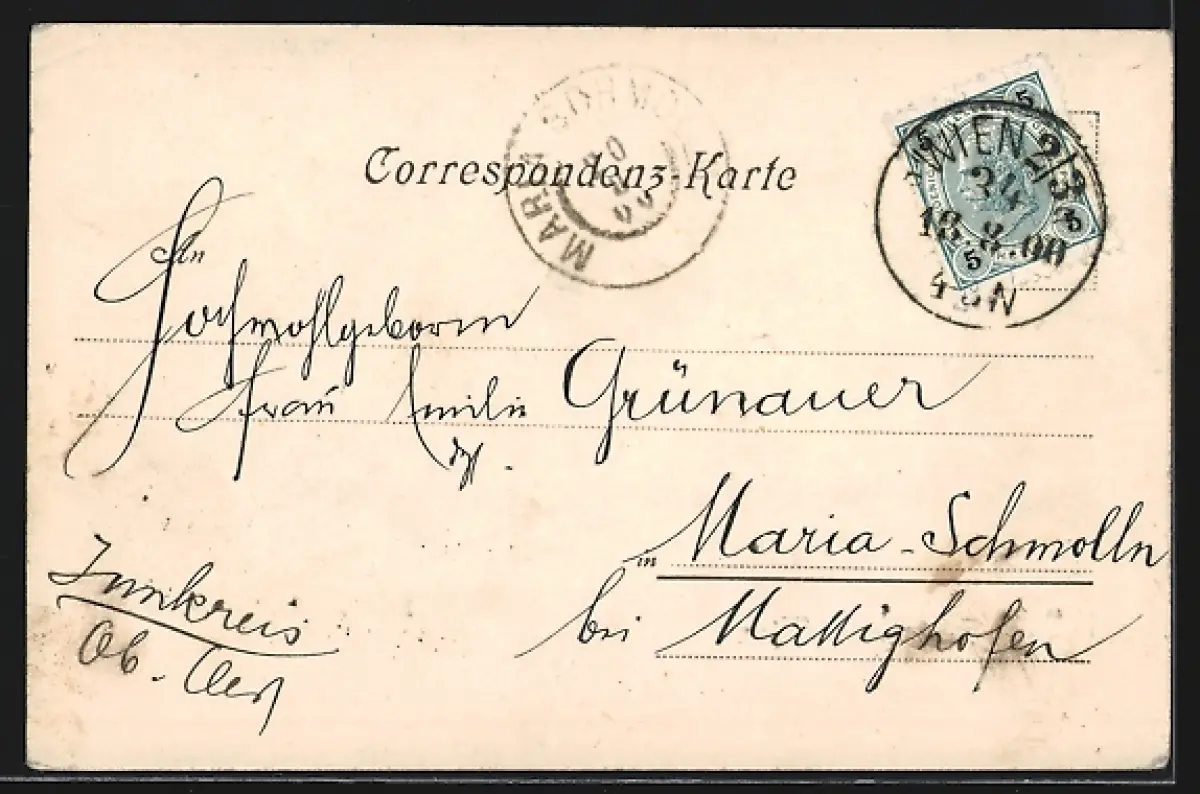 Correspondenz-Karte
WIEN 2/3
34
18.8.00
4 5 N
5
5
5
5
MARIA SCHMO
An
Hochwohlgeboren
Frau Emilie Grünauer
in Maria-Schmolln
bei Mattighofen
Innkreis
Ob. Oest